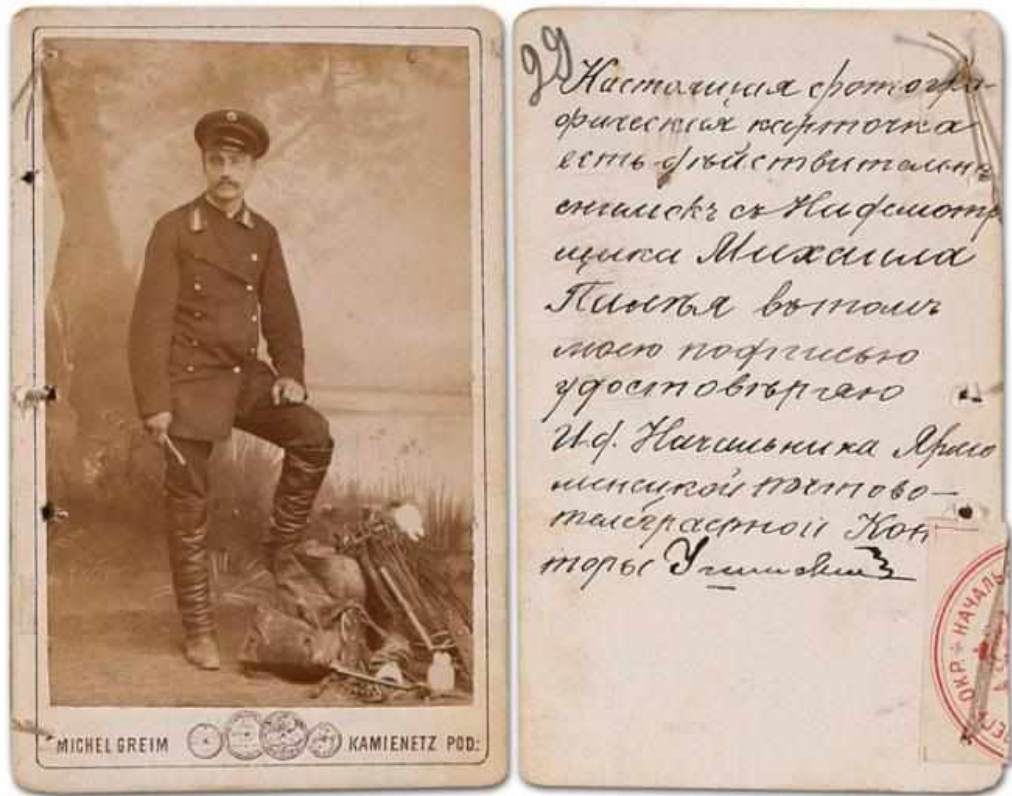 MICHEL GREIM KAMIENETZ POD:
99
Настоящая фотогра-
фическая карточка
есть дѣйствительнъ
снимокъ съ Надсмотр
щика Михаила
вътомъ
моею подписью
удостовѣряю
И.д. Начальника Ярмо
линецкой почтово-
телеграфной Кон
торы
ОКР. НАЧАЛЬ